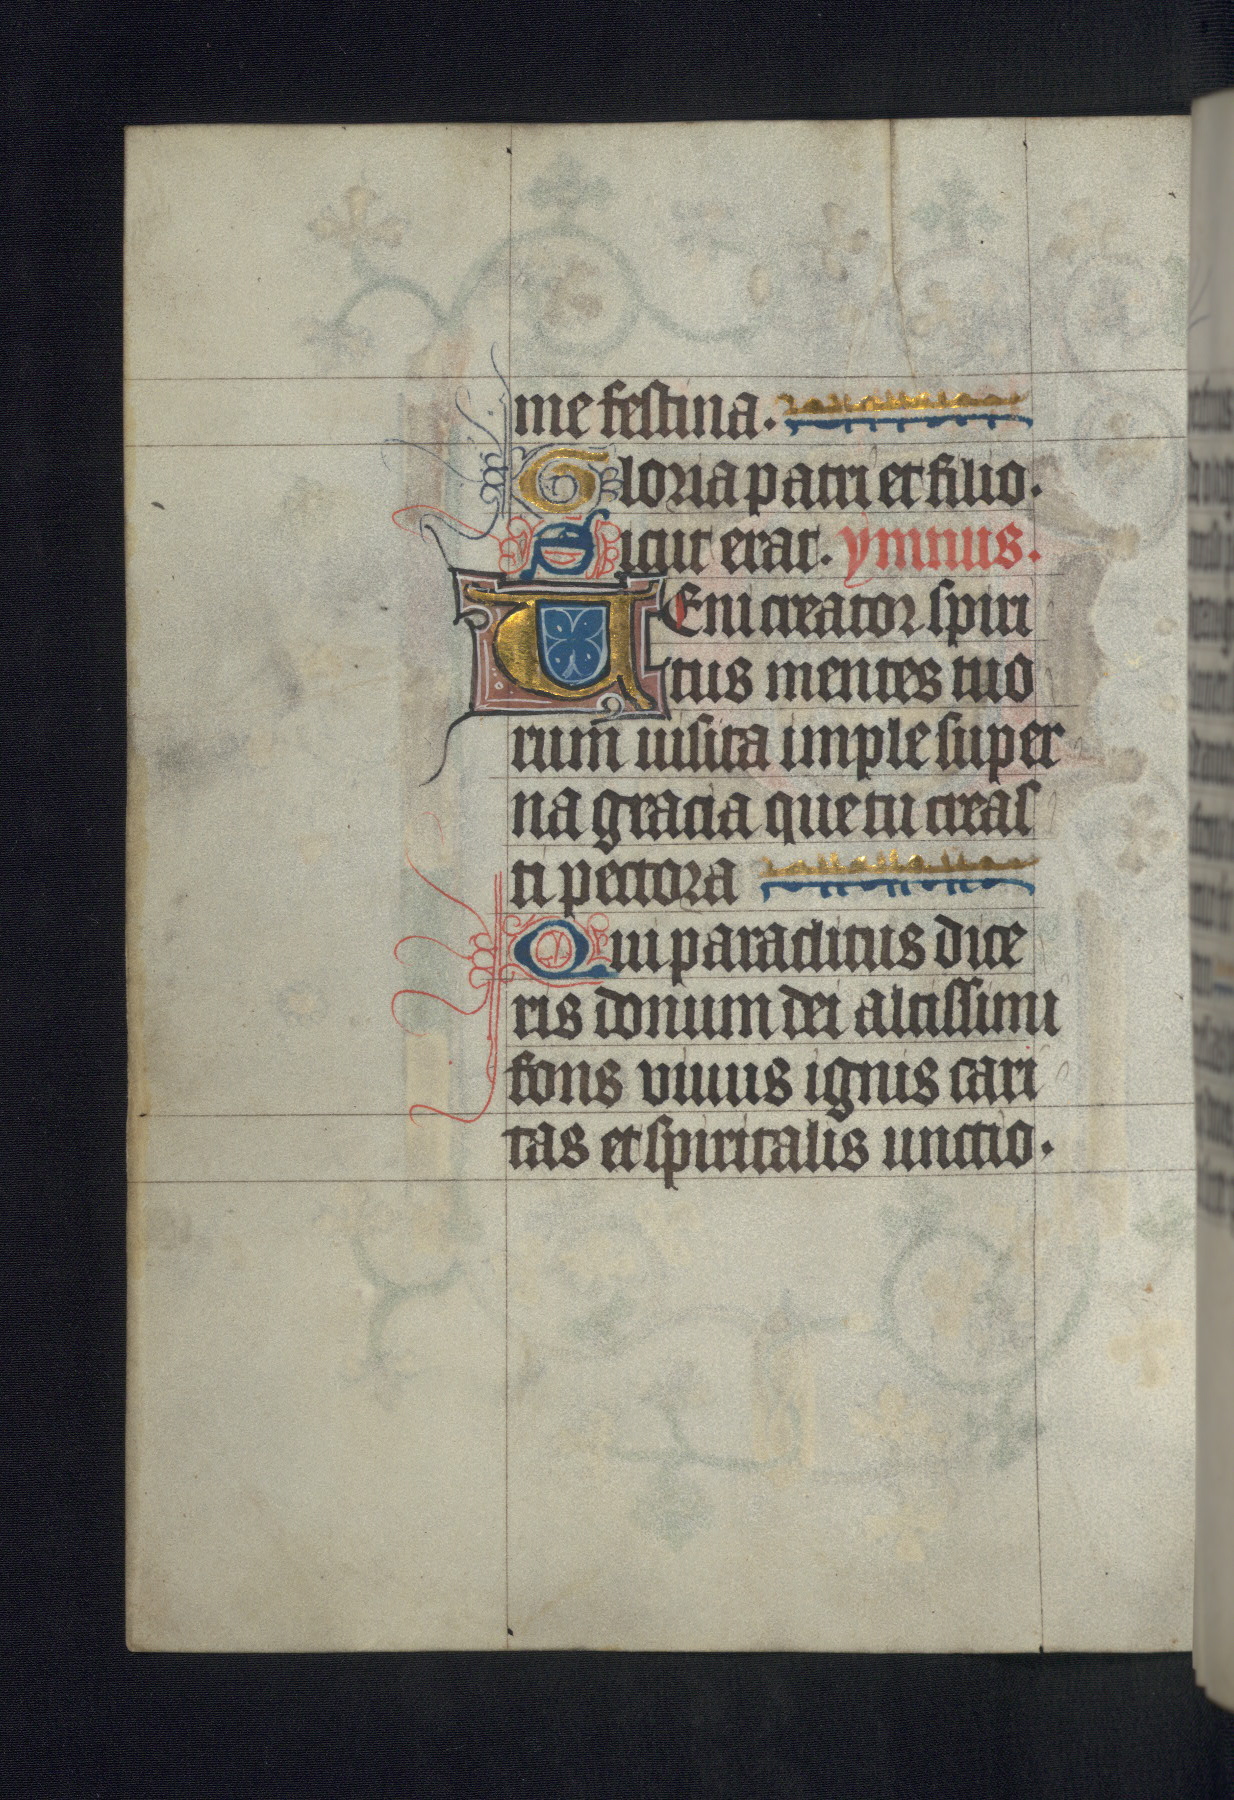 me festina.
Gloria patri et filio.
Sicut erat. ymnus.
UEni creator spiri
tus mentes tuo
rum uisita imple super
na gracia que tu creas
ti pectora
Qui paraclitus dice
ris donum dei altissimi
fons viuus ignis cari
tas et spiritalis unctio.